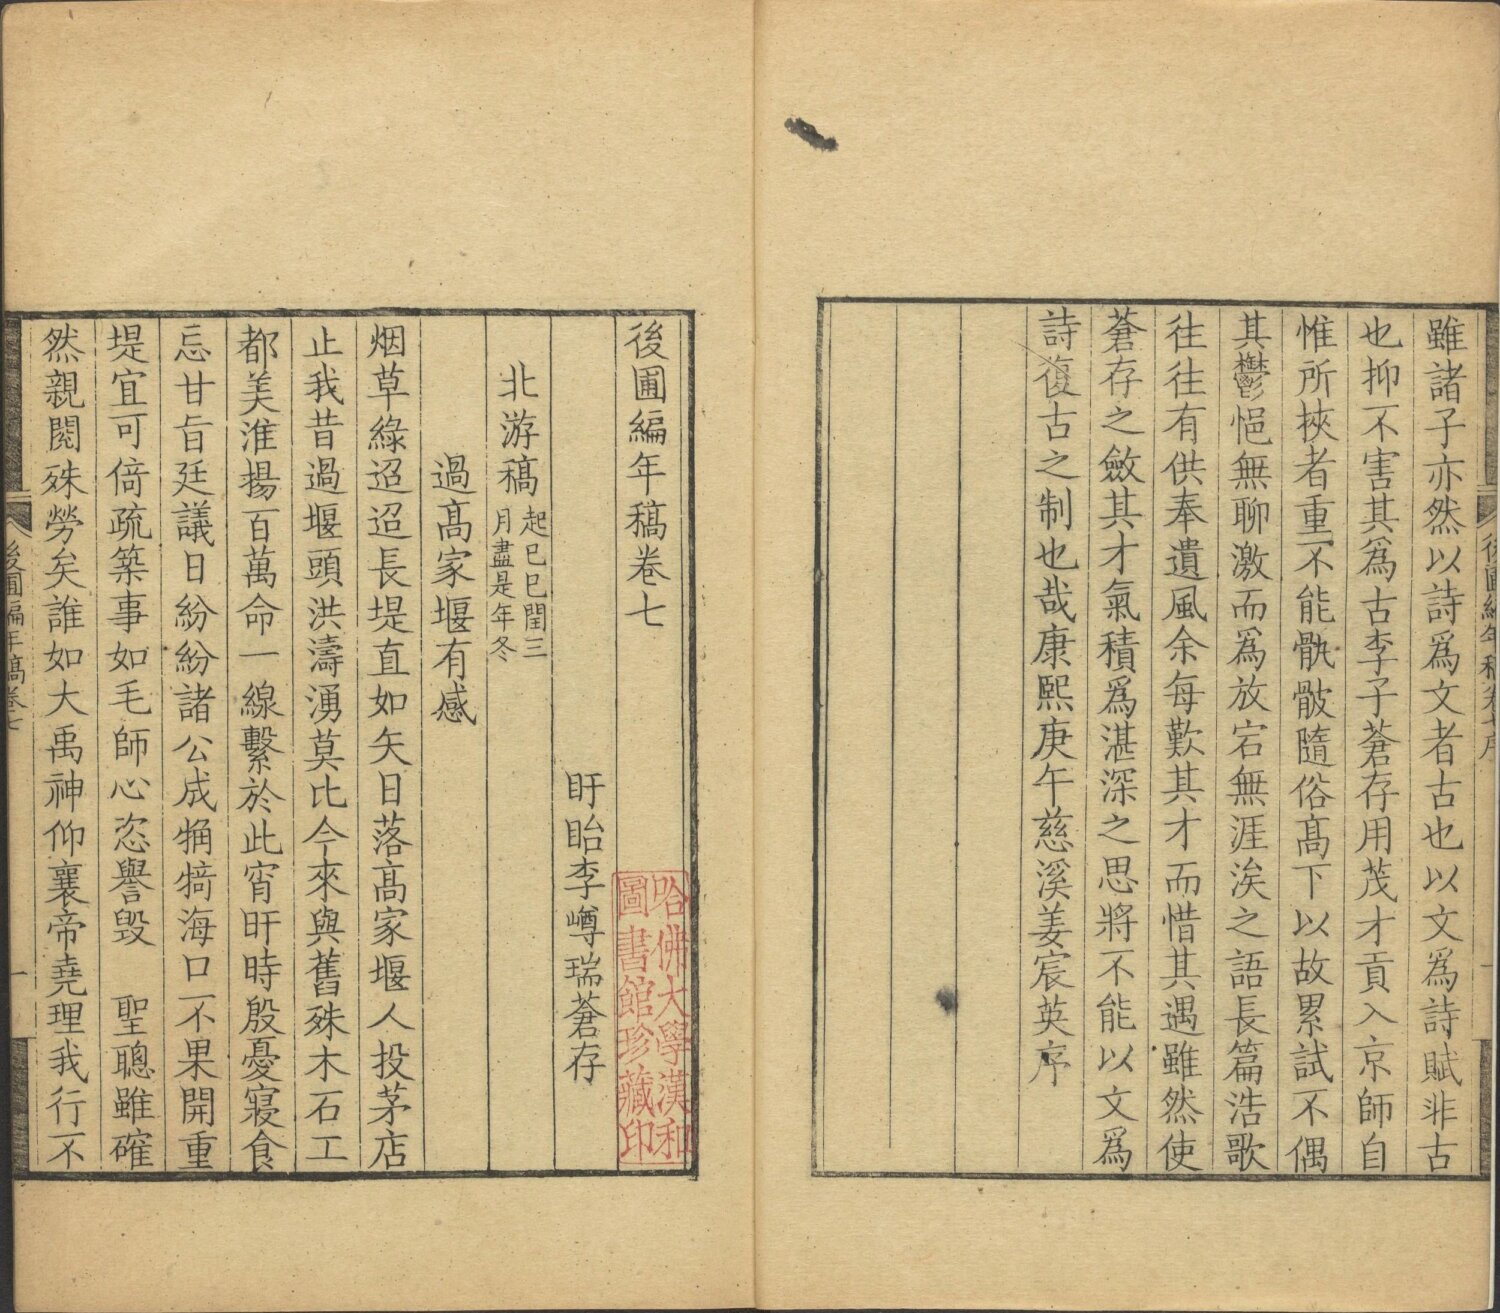 雖諸子亦然以詩爲文者古也以文爲詩賦非古
也抑不害其爲古李子蒼存用茂才貢入京師自
惟所挾者重不能骫骳隨俗高下以故累試不偶
其鬱悒無聊激而爲放宕無涯涘之語長篇浩歌
往往有供奉遺風余每歎其才而惜其遇雖然使
蒼存之斂其才氣積爲湛深之思將不能以文爲
詩復古之制也哉康熙庚午慈溪姜宸英序
後圃編年稿卷七序
一
後圃編年稿卷七
盱眙李嶟瑞蒼存
北游稿 起己巳閏三
月盡是年冬
過高家堰有感
烟草綠迢迢長堤直如矢日落高家堰人投茅店
止我昔過堰頭洪濤湧莫比今來與舊殊木石工
都美淮揚百萬命一線繫於此宵旰時殷憂寢食
忘甘旨廷議日紛紛諸公成犄犄海口不果開重
堤宜可倚疏築事如毛師心恣譽毁 聖聰雖確
然親閱殊勞矣誰如大禹神仰襄帝堯理我行不
後圃編年稿卷七
一
哈佛大學漢和
圖書館珍藏印